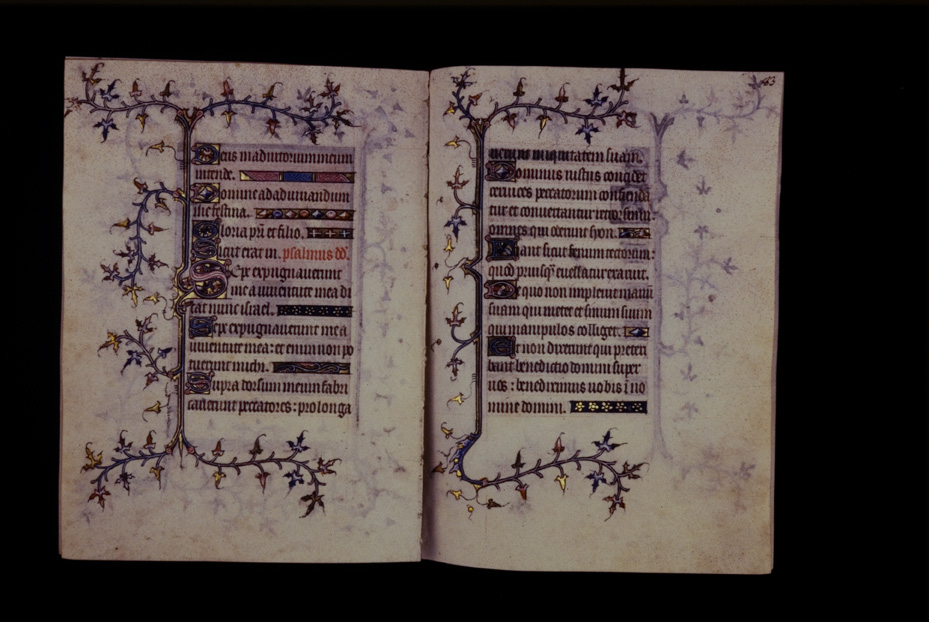 Deus in adiutorium meum
intende.
Domine ad adiuuandum
me festina.
Gloria pri et filio.
Sicut erat in. psalmus dd.
Sepe expugnauerunt
me a iuuentute mea di
cat nunc israel.
Sepe expugnauerunt me a
iuuentute mea: et enim non po
tuerunt michi.
Supra dorsum meum fabri
cauerunt peccatores: prolonga
uerunt iniquitatem suam.
Dominus iustus concidet
ceruices peccatorum confunda
tur et conuertantur retrorsum:
omnes qui oderunt syon.
Fiant sicut fenum tectorum:
quod priusq euellatur exaruit.
De quo non impleuit manu
suam qui metet et sinum suum
qui manipulos colliget.
Et non dixerunt qui preteri
bant benedictio domini super
uos: benediximus uobis i no
mine domini.